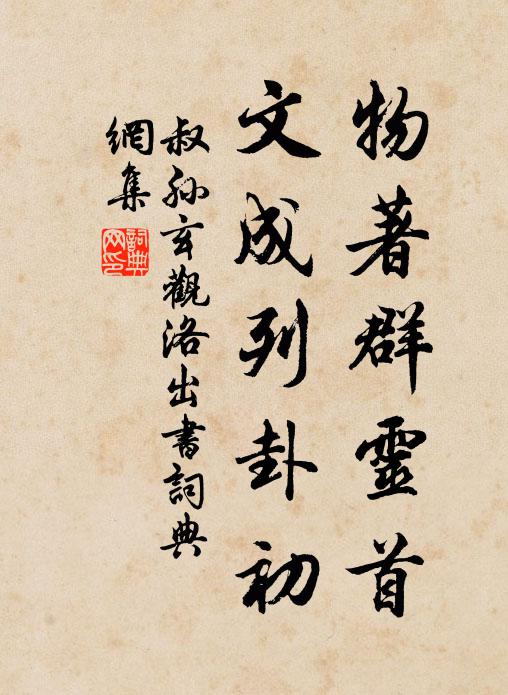 物著群靈首
文成列卦初
叔孫玄觀洛出書詞典
網集
詞典
网印